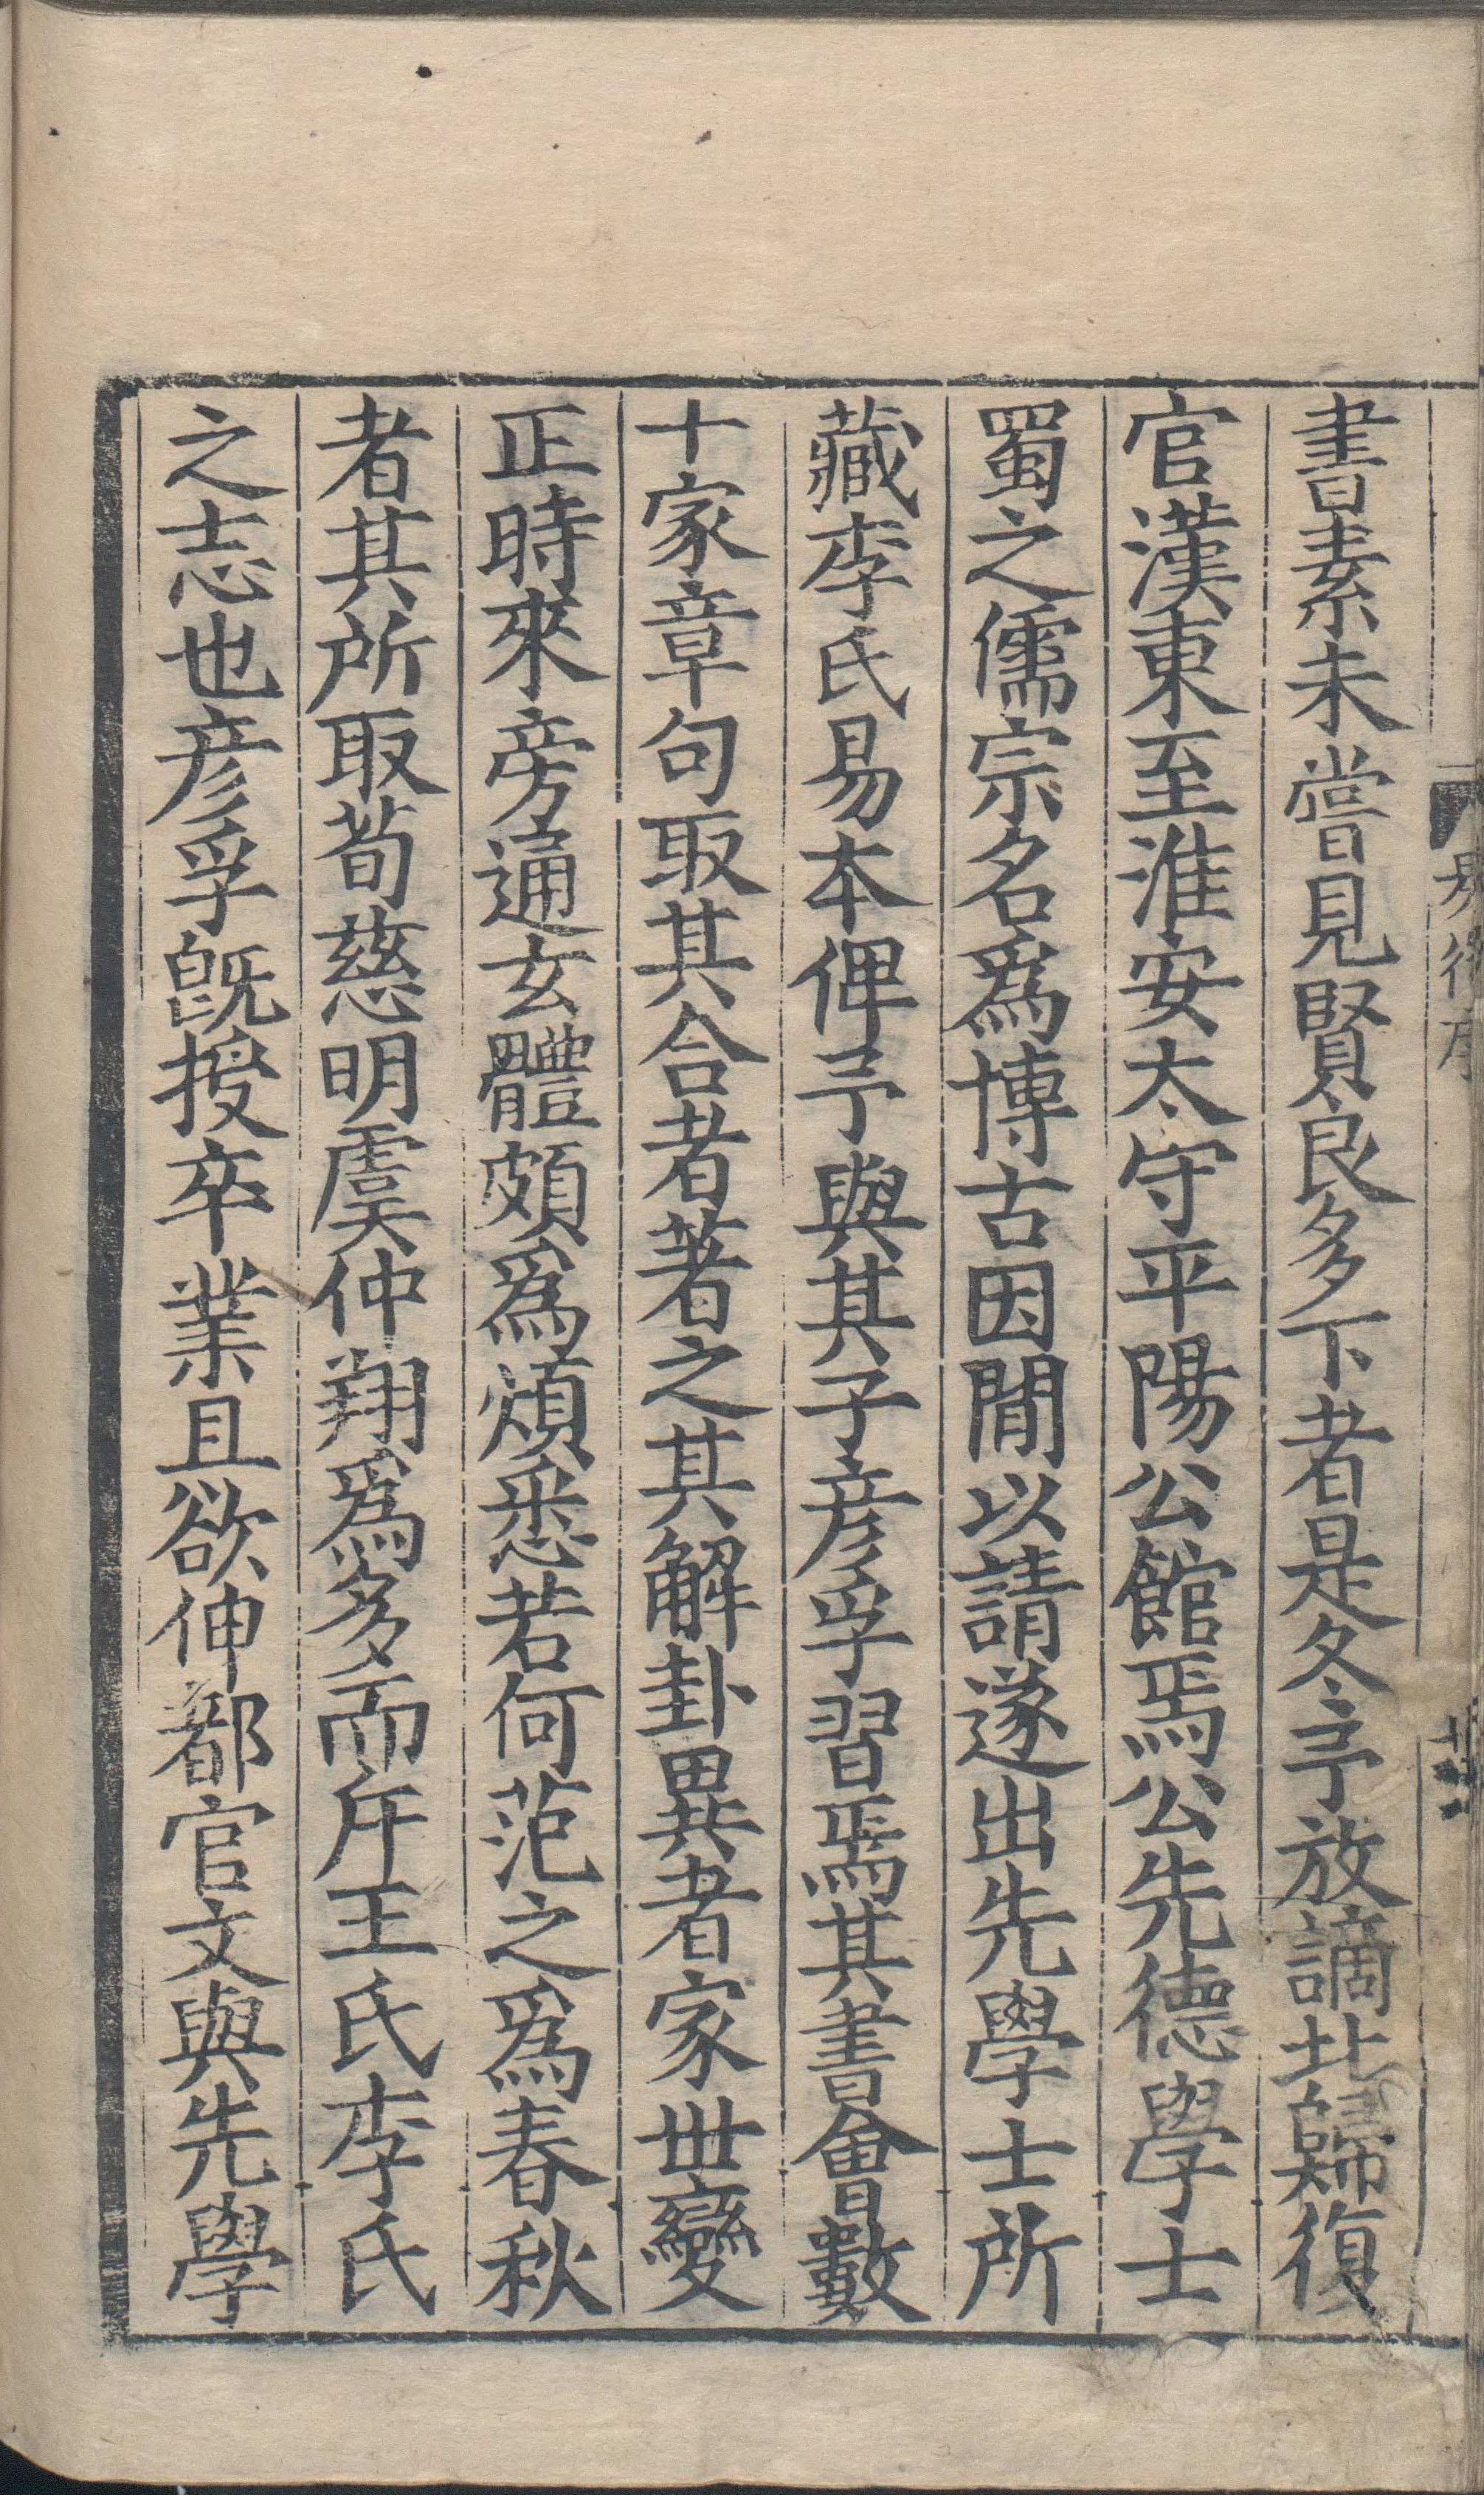 書素未嘗見賢良多下者是冬予放謫北歸復
官漢東至淮安太守平陽公館焉公先德學士
蜀之儒宗名爲博古因閒以請遂出先學士所
藏李氏易本俾予與其子彥孚習焉其書會數
十家章句取其合者著之其解卦異者家世變
正時來旁通玄體頗爲煩悉若何范之爲春秋
者其所取荀慈明虞仲翔爲多而斥王氏李氏
之志也彥孚旣授卒業且欲伸都官文與先學